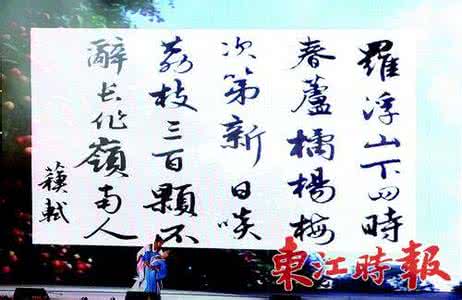 羅浮山下四時
春蘆橘楊梅
次第新日啖
荔枝三百顆不
辭长作嶺南人
蘇軾
東江時報